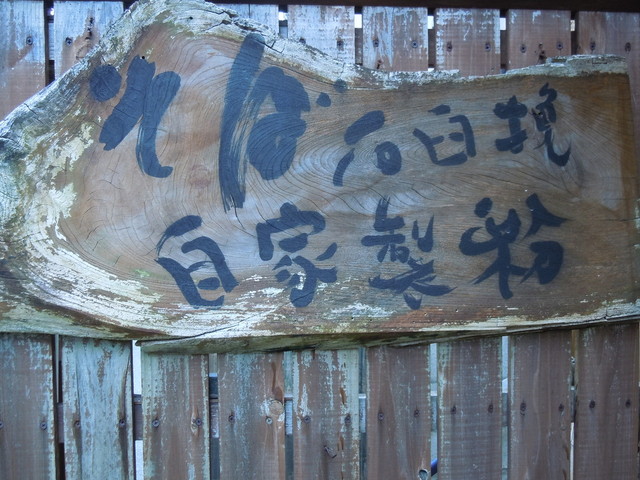 そば石臼挽
自家製粉